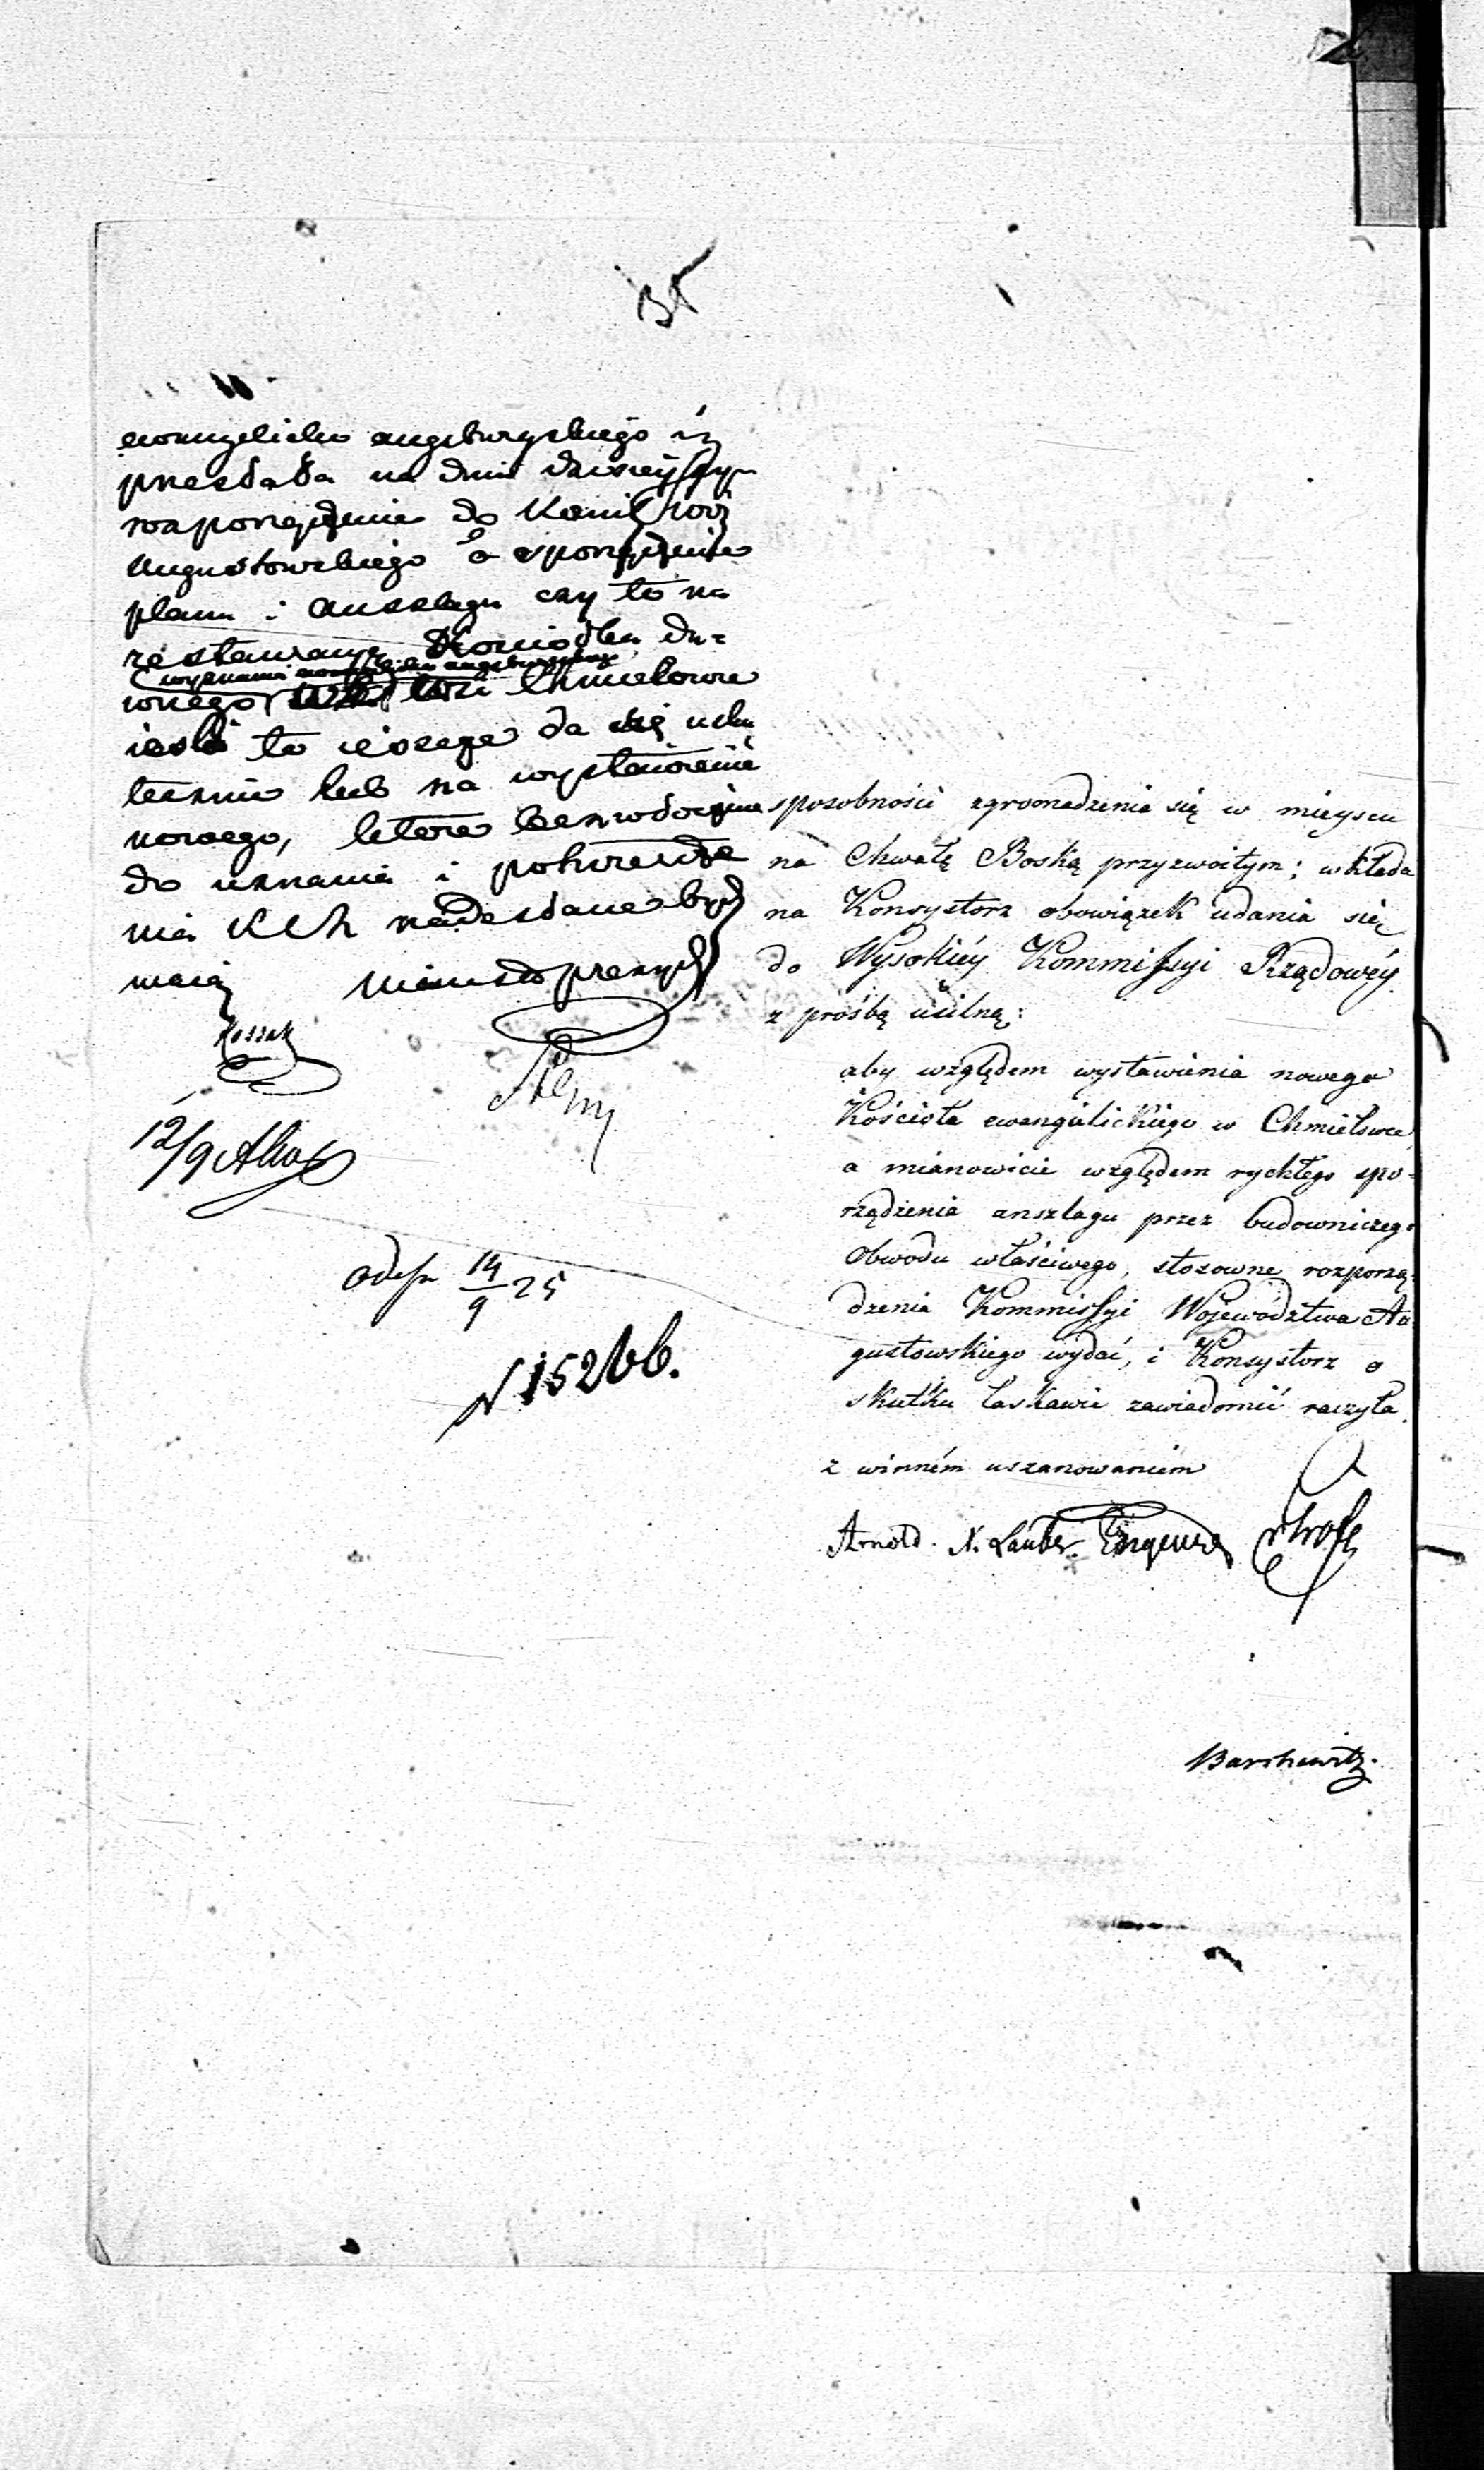 ewangelicko augsburskiego iż
przesłała na dniu dzisieyszym
rozporządzenie do Kom: Woj:
Augustowskiego o sporządzenie
planu i anszlagu czy to na
restauracyą Kościoła da-
wyznania ewangelicko augsburskiego
wnego Chmielowce
iesli to ieszcze da się usku
tecznić lub na wystawienie
nowego, które bezwłocznie
do uznania i potwierdze
nia nadesłane być
maią Minister prezyd
Kossak
12/9
14/9 25
N 152
sposobności zgromadzenia się w mieyscu
na Chwałę Boską przyzwoitym; wkłada
na Konsystorz obowiązek udania się
do Wysokiéy Kommissyi Rządowéy
z prośbą usilną:
aby względem wystawienia nowego
Kościoła ewangelickiego w Chmielowce
a mianowicie względem rychłego spo-
rządzenia anszlagu przez budowniczego
Obwodu właściwego, stosowne rozporzą-
dzenia Kommissyi Województwa Au-
gustowskiego wydać, i Konsystorz o
skutku łaskawie zawiadomić raczyła.
z winném uszanowaniem
Arnold. N. Lauber.
Barchewitz.